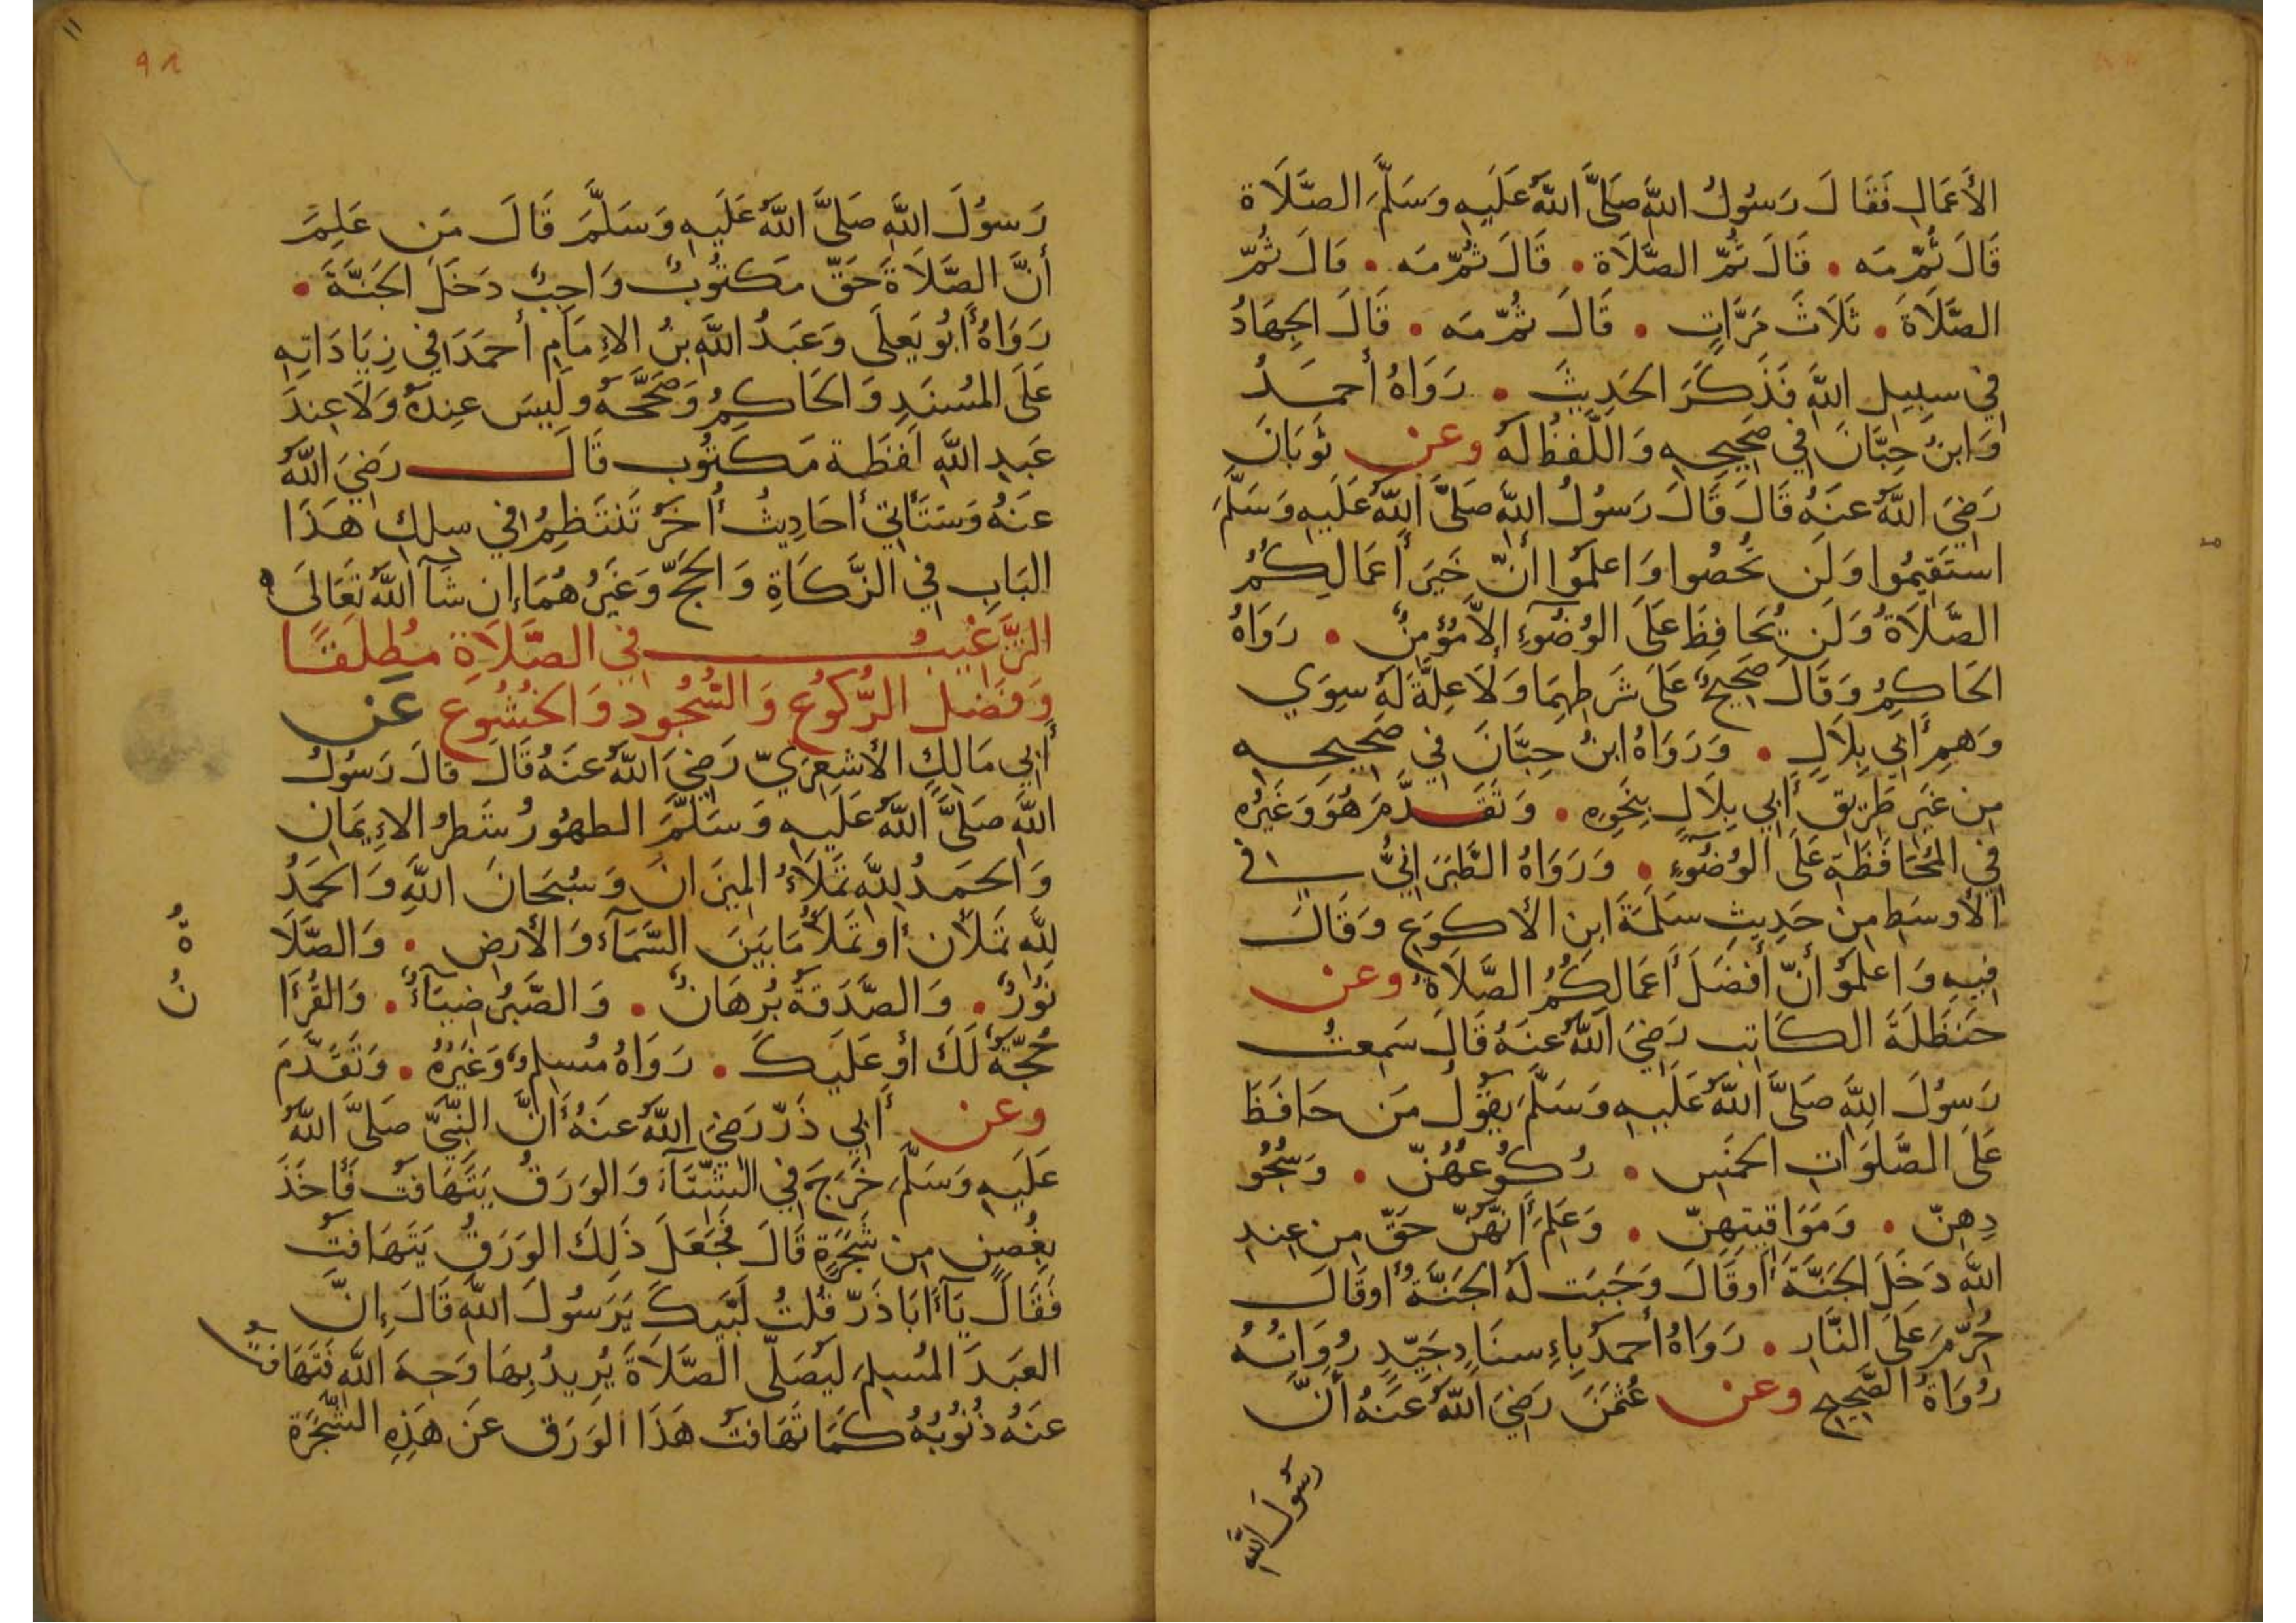 الأَعمَالِ فَقَالَ رَسُولُ اللَّهِ صَلَّى اللَّهُ عَلَيهِ وَسَلَّمَ الصَّلَاة
قَالَ ثُمَّ مَه . قَالَ ثُمَّ الصَّلَاة . قَالَ ثُمَّ مَه . قَالَ ثُمَّ
الصَّلَاةَ . ثَلَاثَ مَرَّاتٍ . قَالَ ثُمَّ مَه . قَالَ الجِهَادُ
في سبِيلِ اللَّهِ فَذَكَرَ الحَدِيثَ . رَوَاهُ أحمَدُ
وَابنُ حِبَّانَ في صَحِيحِهِ وَاللَّفظُ لَهُ وعن ثَوبَانَ
رَضِيَ اللَّهُ عنَهُ قَالَ قَالَ رَسُولُ اللَّهِ صَلَّى اللَّهُ عَلَيهِ وَسَلَّمَ
استَقِيمُوا وَلَن تُحصُوا وَاعلَمُوا أنَّ خَيرَ أَعمَالِكُمُ
الصَّلَاةُ وَلَن يُحَافِظَ عَلَى الوُضُوءِ إلَّا مُؤمِنٌ . رَوَاهُ
الحَاكِمُ وَقَالَ صَحِيحٌ عَلَى شَرطِهِمَا وَلَا عِلَّةَ لَهُ سِوَي
وَهمِ أَبِي بِلَالٍ . وَرَوَاهُ ابنُ حِبَّانَ في صَحِيحِه
مِن غَيرِ طَرِيقِ أَبِي بِلَالٍ بِنَحوِهِ . وَتَقَدَّمَ هُوَ وَغَيرُه
في المُحَافَظَةِ عَلَى الوُضُوءِ . وَرَوَاهُ الطَّبَرَانِيُّ في
الأَوسَطِ مِن حَدِيثِ سَلَمَةَ ابنِ الأَكوَعِ وَقَالَ
فِيهِ وَاعلَمُوا أنَّ أَفضَلَ أَعمَالِكُمُ الصَّلَاةُ وعن
حَنظَلَةَ الكَاتِبِ رَضِيَ اللَّهُ عنَهُ قَالَ سَمِعتُ
رَسُولَ اللَّهِ صَلَّى اللَّهُ عَلَيهِ وَسَلَّمَ يَقُولُ مَن حَافَظَ
عَلَى الصَّلَوَاتِ الخَمسِ . رُكُوعِهِنَّ . وَسُجُو
دِهِنَّ . وَمَوَاقِيتِهِنَّ . وَعَلِمَ أَنَّهُنَّ حَقٌّ مِن عِندِ
اللَّهِ دَخَلَ الجَنَّةَ أَوقَالَ وَجَبَت لَهُ الجَنَّةُ أوقَالَ
حُرِّمَ عَلَى النَّارِ . رَوَاهُ أحمَدُ بِإِسنَادٍ جَيِّدٍ رُوَاتُهُ
رُوَاةُ الصَّحِيحِ وعن عُثمَنَ رَضِيَ اللَّهُ عَنهُ أَنَّ
رسُولَ اللَّهِ
رَسُولَ اللَّهِ صَلَّى اللَّهُ عَلَيهِ وَسَلَّمَ قَالَ مَن عَلِمَ
أَنَّ الصَّلَاةَ حَقٌّ مَكتُوبٌ وَاجِبٌ دَخَلَ الجَنَّةَ .
رَوَاهُ أَبُو يَعلَى وَعَبدُ اللَّهِ بنُ الإِمَامِ أحمَدَ في زِيَادَاتِهِ
عَلَى المُسنَدِ وَالحَاكِمُ وَصَحَّحَهُ وَلَيسَ عِندَهُ وَلَا عِندَ
عَبدِ اللَّهِ لَفظَة مَكتُوب قَالَ رضِيَ اللَّهُ
عنَهُ وَسَتَأتي أحَادِيثُ أُخَرُ تَنتَظِمُ في سِلكِ هَذَا
البَابِ في الزَّكَاةِ وَالحَجِّ وَغَيرِهُمَا إن شَآ اللَّهُ تَعَالَى
التَّرغِيبُ في الصَّلَاةِ مُطلَقًا
وَفَضلِ الرُّكُوعِ وَالسُّجُودِ وَالخُشُوعِ عَن
أَبِي مَالِكٍ الأَشعَرِيِّ رَضِيَ اللَّهُ عنَهُ قَالَ قَالَ رَسُولُ
اللَّهِ صَلَّى اللَّهُ عَلَيهِ وَسَلَّمَ الطهُورُ شَطرُ الإِيمَانِ
وَالحَمدُ لِلَّهِ تَملَأُ المِيزَانَ وَسُبحَانَ اللَّهِ وَالحَمدُ
لِلَّهِ تَملَآنِ أو تَملَأُ مَا بَينَ السَّمَآءِ وَالأَرضِ . وَالصَّلَا
ةُ
نُورٌ . وَالصَّدَقَةُ بُرهَانٌ . وَالصَّبرُ ضِيَآءٌ . وَالقُرءَا
نُ
حُجَّةٌ لَكَ أو عَلَيكَ . رَوَاهُ مُسلِمٌ وَغَيرُهُ . وَتَقَدَّمَ
وعن أَبِي ذَرٍّ رَضِيَ اللَّهُ عنَهُ أَنَّ النَّبِيَّ صَلَّى اللَّهُ
عَلَيهِ وَسَلَّمَ خَرَجَ في الشِّتَآءِ وَالوَرَقُ يَتَهَافَتُ فَأَخَذَ
بِغُصنٍ مِن شَجَرَةٍ قَالَ فَجَعَلَ ذَلِكَ الوَرَقُ يَتَهَافَتُ
فَقَالَ يَآ أَبَا ذَرٍّ قُلتُ لَبَّيكَ يَرَسُولَ اللَّهِ قَالَ إِنَّ
العَبدَ المُسلِمَ لَيُصَلِّي الصَّلَاةَ يُرِيدُ بِهَا وَجهَ اللَّهِ فَتَهَافَتُ
عَنهُ ذُنُوبُهُ كَمَا تَهَافَتَ هَذَا الوَرَق عَن هَذِهِ الشَّجَرَة